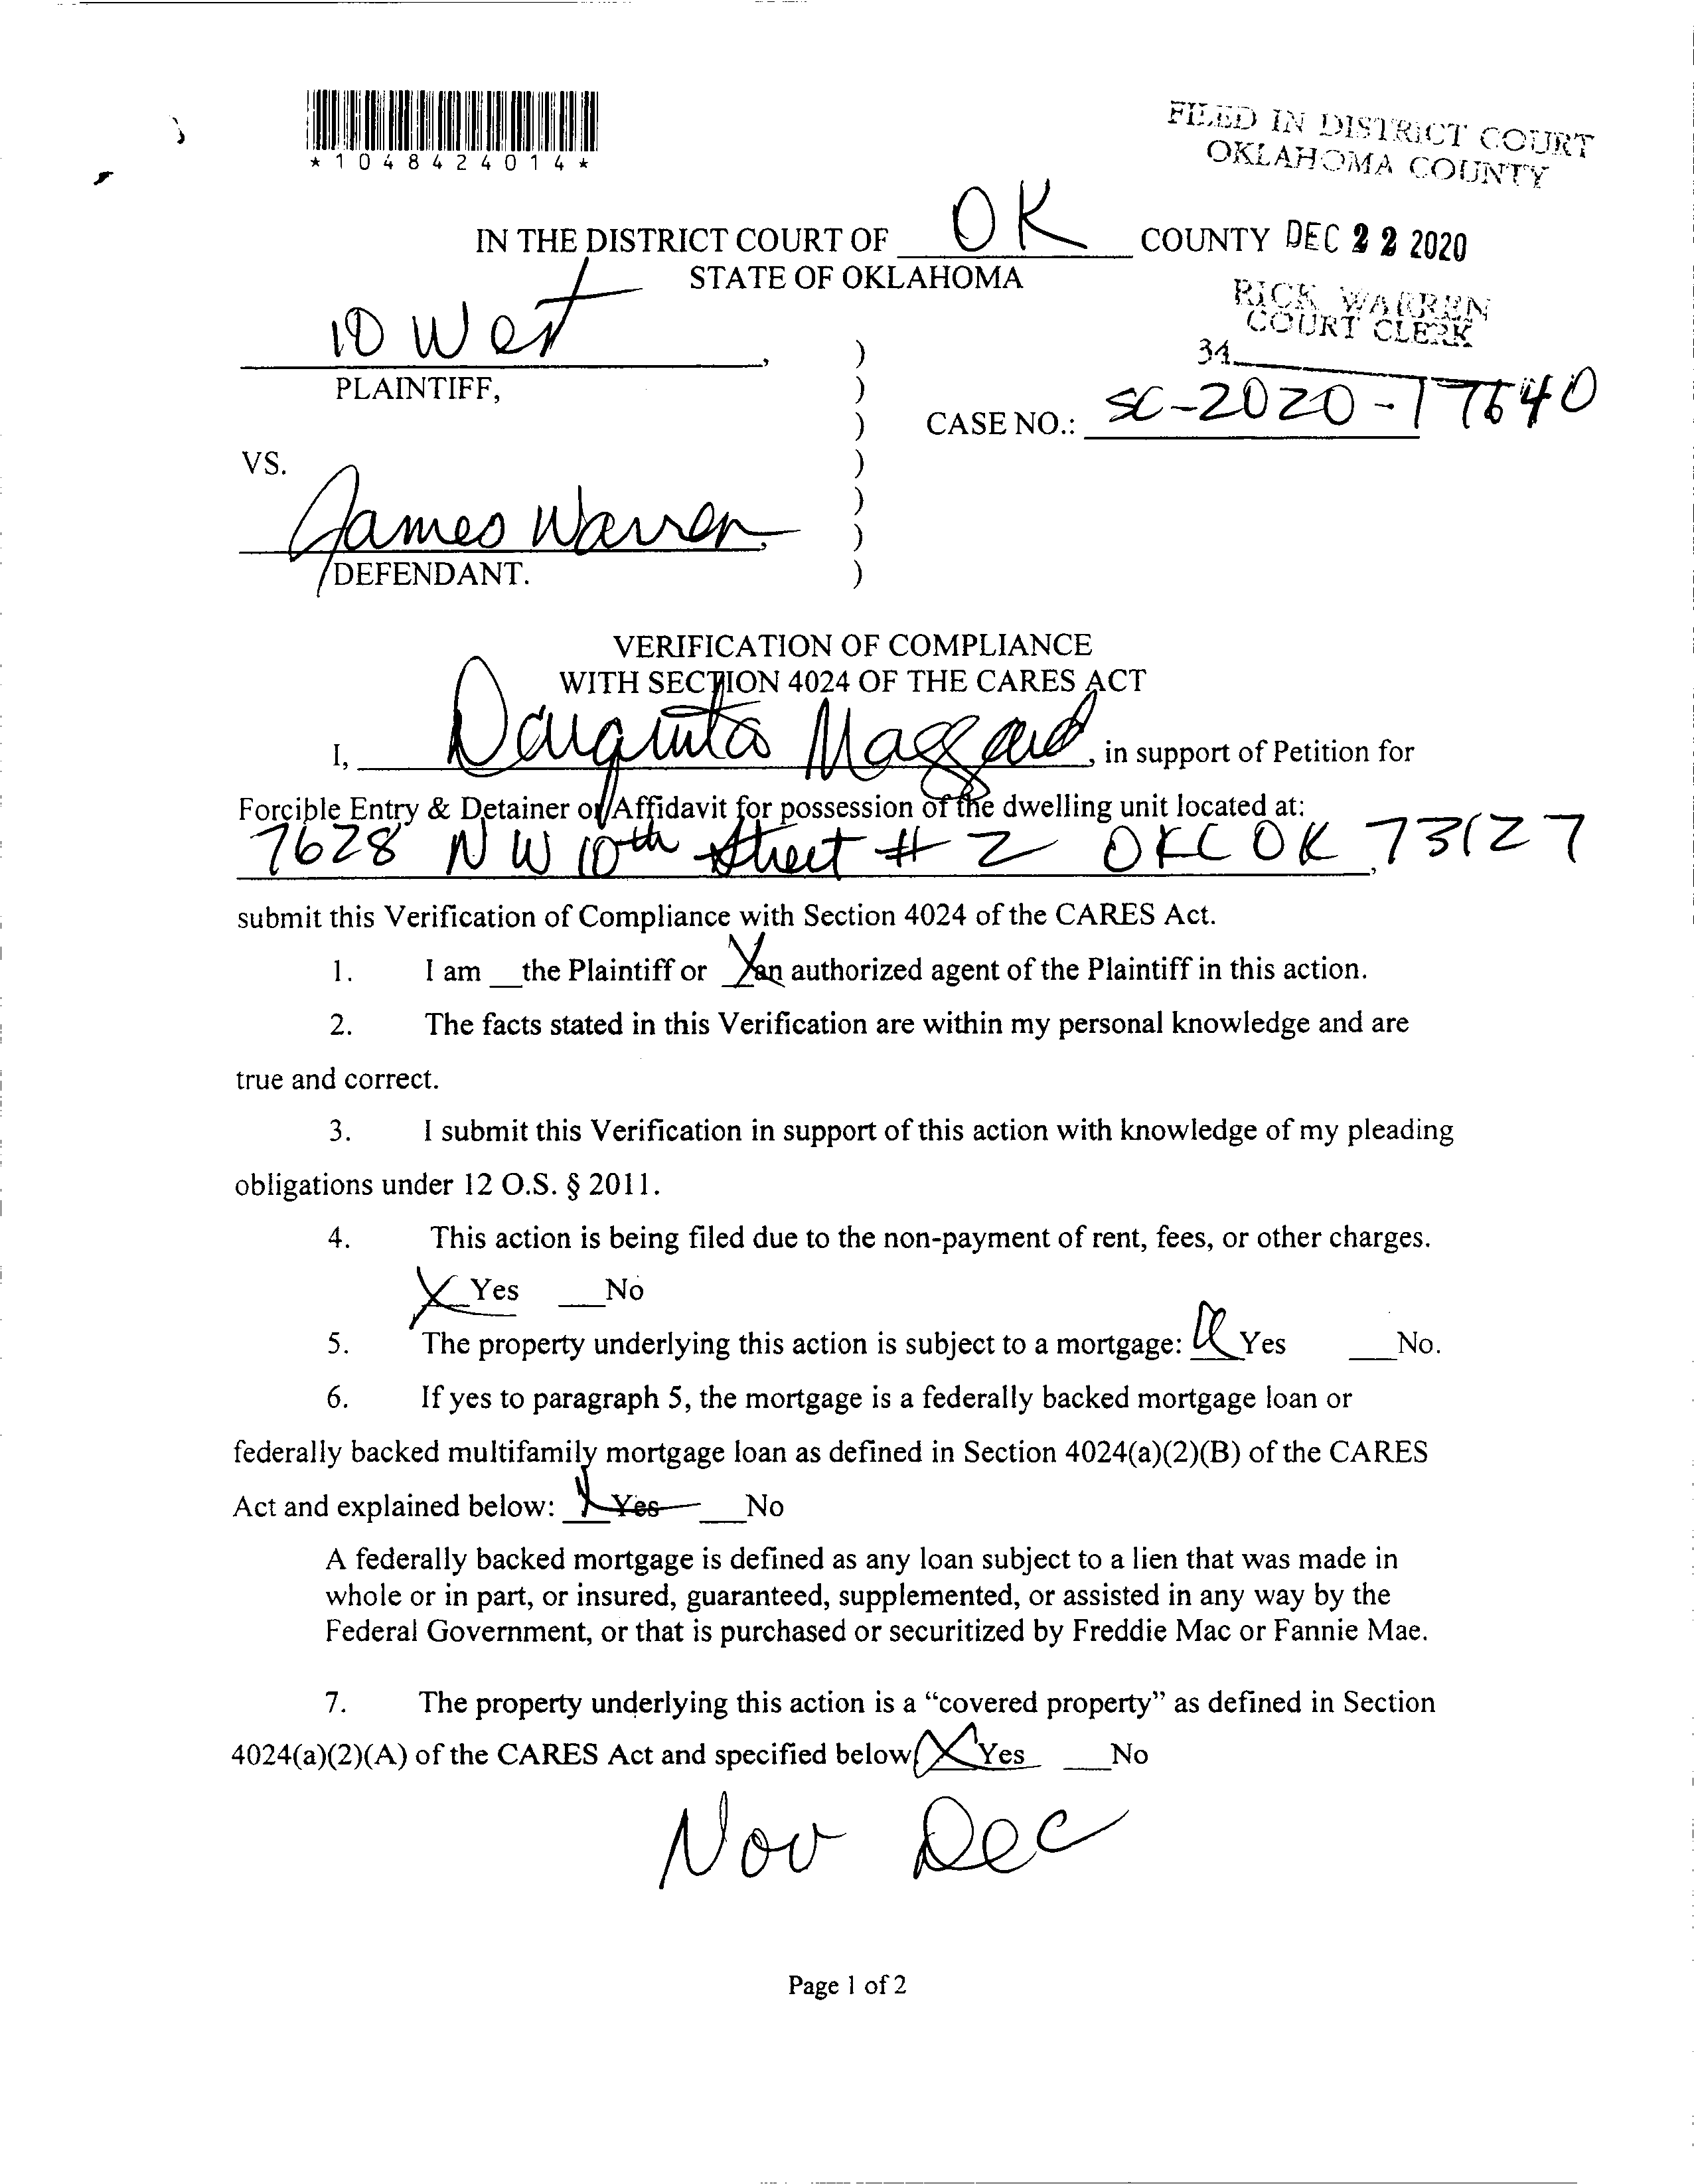 *1048424014*
FILED IN DISTRICT COURT
OKLAHOMA COUNTY
IN THE DISTRICT COURT OF OK COUNTY DEC 22 2020
STATE OF OKLAHOMA
RICK WARREN
COURT CLERK
34
10 West,
PLAINTIFF,
CASE NO.: SC-2020-17640
VS.
James Warren,
DEFENDANT.
)
)
)
)
)
)
)
VERIFICATION OF COMPLIANCE
WITH SECTION 4024 OF THE CARES ACT
I, Maggard, in support of Petition for
Forcible Entry & Detainer or Affidavit for possession of the dwelling unit located at:
7628 NW 10th Street # 2 OKC OK 73127,
submit this Verification of Compliance with Section 4024 of the CARES Act.
1. I am __the Plaintiff or X an authorized agent of the Plaintiff in this action.
2. The facts stated in this Verification are within my personal knowledge and are
true and correct.
3. I submit this Verification in support of this action with knowledge of my pleading
obligations under 12 O.S. § 2011.
4. This action is being filed due to the non-payment of rent, fees, or other charges.
X Yes ___No
5. The property underlying this action is subject to a mortgage: Yes ___No.
6. If yes to paragraph 5, the mortgage is a federally backed mortgage loan or
federally backed multifamily mortgage loan as defined in Section 4024(a)(2)(B) of the CARES
Act and explained below: X Yes ___No
A federally backed mortgage is defined as any loan subject to a lien that was made in
whole or in part, or insured, guaranteed, supplemented, or assisted in any way by the
Federal Government, or that is purchased or securitized by Freddie Mac or Fannie Mae.
7. The property underlying this action is a “covered property” as defined in Section
4024(a)(2)(A) of the CARES Act and specified below X Yes ___No
Nov Dec
Page 1 of 2